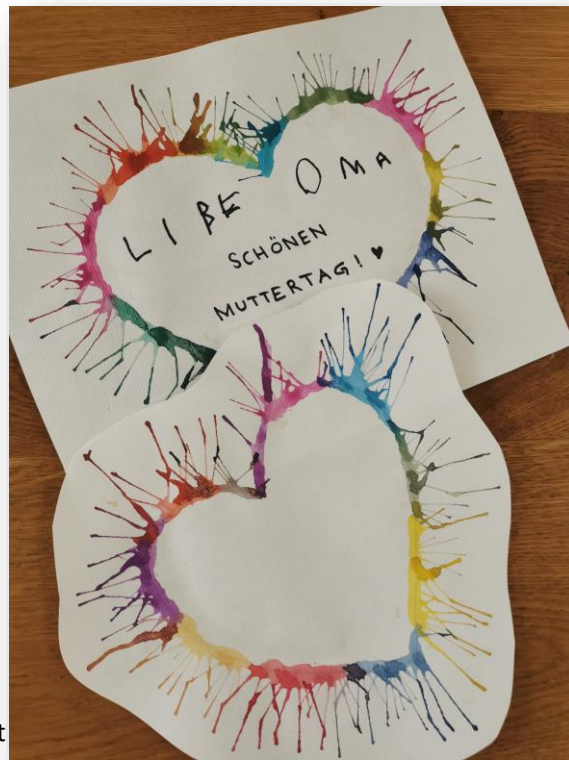 LIBE OMA
SCHÖNEN
MUTTERTAG! ♥
t